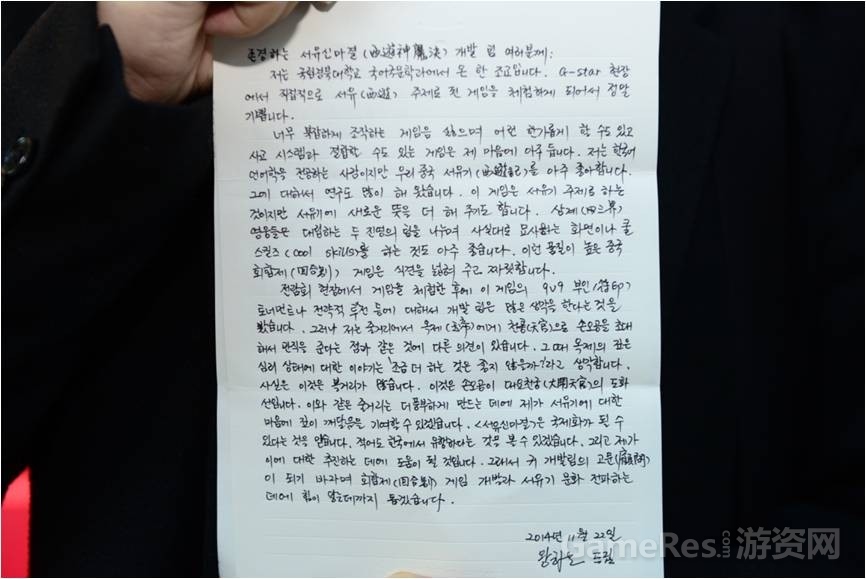 존경하는 서유신마결(西遊神魔決) 개발 팀 여러분께:
저는 국립경북대학교 국어국문학과에서 온 한 조교입니다. G-star 현장
에서 직접적으로 서유(西遊) 주제로 한 게임을 체험하게 되어서 정말
기쁩니다.
너무 복잡하게 조작하는 게임은 싫으며 이런 한가롭게 할 수도 있고
사교 시스템과 결합할 수도 있는 게임은 제 마음에 아주 듭니다. 저는 한국어
언어학을 전공하는 사람이지만 우리 중국 서유기(西遊記)를 아주 좋아합니다.
그에 대해서 연구도 많이 해 왔습니다. 이 게임은 서유기 주제로 하는
것이지만 서유기에 새로운 뜻을 더 해 주기도 합니다. 삼계
영웅들은 대립하는 두 진영의 팀을 나누며 사실대로 묘사하는 화면이나 쿨
스킬즈(cool skills)를 하는 것도 아주 좋습니다. 이런 품질이 높은 중국
회합제(回合制) 게임은 식견을 넓혀 주고 짜릿합니다.
전람회 현장에서 게임을 체험한 후에 이 게임의 9v9 부인
토너먼트나 전략적 등에 대해서 개발 팀은 많은 생각을 한다는 것을
봤습니다. 그러나 저는 줄거리에서 옥제(玉帝)에게 천관(天官)으로 손오공을 초대
해서 관직을 준다는 점과 같은 것에 다른 의견이 있습니다. 그 때 옥제의 깊은
심리 상태에 대한 이야기는 '조금 더 하는 것은 좋지 않을까?'라고 생각합니다.
사실은 이것은 볼거리가 많습니다. 이것은 손오공이 대요천궁(大鬧天宮)의 도화
선입니다. 이와 같은 줄거리는 더 풍부하게 만드는 데에 제가 서유기에 대한
마음에 깊이 깨달음을 기여할 수 있겠습니다. <서유신마결>은 국제화가 될 수
있다는 것을 압니다. 적어도 한국에서 유행하다는 것을 볼 수 있겠습니다. 그리고 제가
이에 대한 추진하는 데에 도움이 될 것입니다. 그래서 귀 개발팀의 고문(顧問)
이 되기 바라며 회합제(回合制) 게임 개발과 서유기 문화 전파하는
데에 힘이 닿는데까지 돕겠습니다.
2014년 11월 22일
드림
GameRes.com 游资网